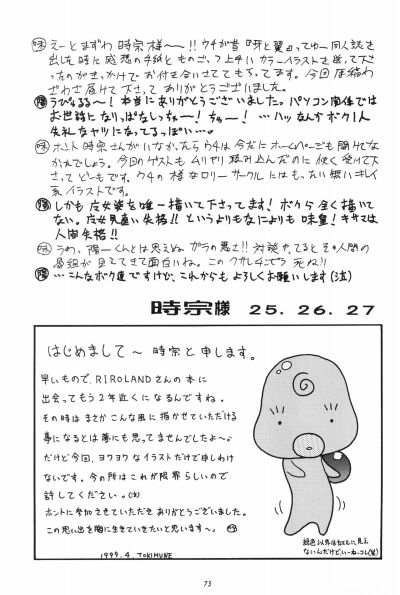 味 えーとまずわ 時宗 様〜!! ウチが昔『牙と翼』ってゆー同人誌を
出した時に感想の手紙とものごっつ上手いカラーイラストを送って下さ
ったのがきっかけでお付き合いさせてもろてます。今回原稿わ
ざわざ届けて下さって ありがとうございました。
陽 うひなるる〜! 本当にありがとうございました。パソコン関係では
お世話になりっぱなしっちゅー! ちゅー! … ハッなんかボク1人
失礼なヤツになってるっぽい…。
味 ホント時宗さんがいなかったらウチは今だにホームページも開けてな
かったでしょう。今回のゲストも ムリヤリ頼み込んだのに快く受けて下
さって どーもです。ウチの様なロリーサークルにはもったい無いキレイ
系イラストです。
陽 しかも 成女姿を唯一描いて下さってます! ボクら全く描いて
ない。成女見直い失格!! というよりもなによりも味皇! キサマは
人間失格!!
味 うわ、陽一くんとは思えぬガラの悪さ!! 対談やってるとその人間の
骨組が見えてきて面白いね。このクサレ
死ねり!!
陽 …こんなボク達ですけど、これからも よろしくお願いします(泣)
時宗様 25. 26. 27
はじめまして〜 時宗と申します。
早いもので、RIROLANDさんの本に
出会ってもう2年近くになるんですね。
その時は まさか こんな風に描かせていただける
事になるとは夢にも思ってませんでしたよ〜♪
だけど今回、ヨワヨワなイラストだけで申しわけ
ないです。今の所はこれが限界らしいので
許してください。(泣)
ホントに参加させていただき ありがとうございました。
この思い出を胸に生きていきたいと思います〜♪
1999.4. TOKIMUNE
桃色以外はセルに見え
ないんだけど、いーね、コレ(笑)
73